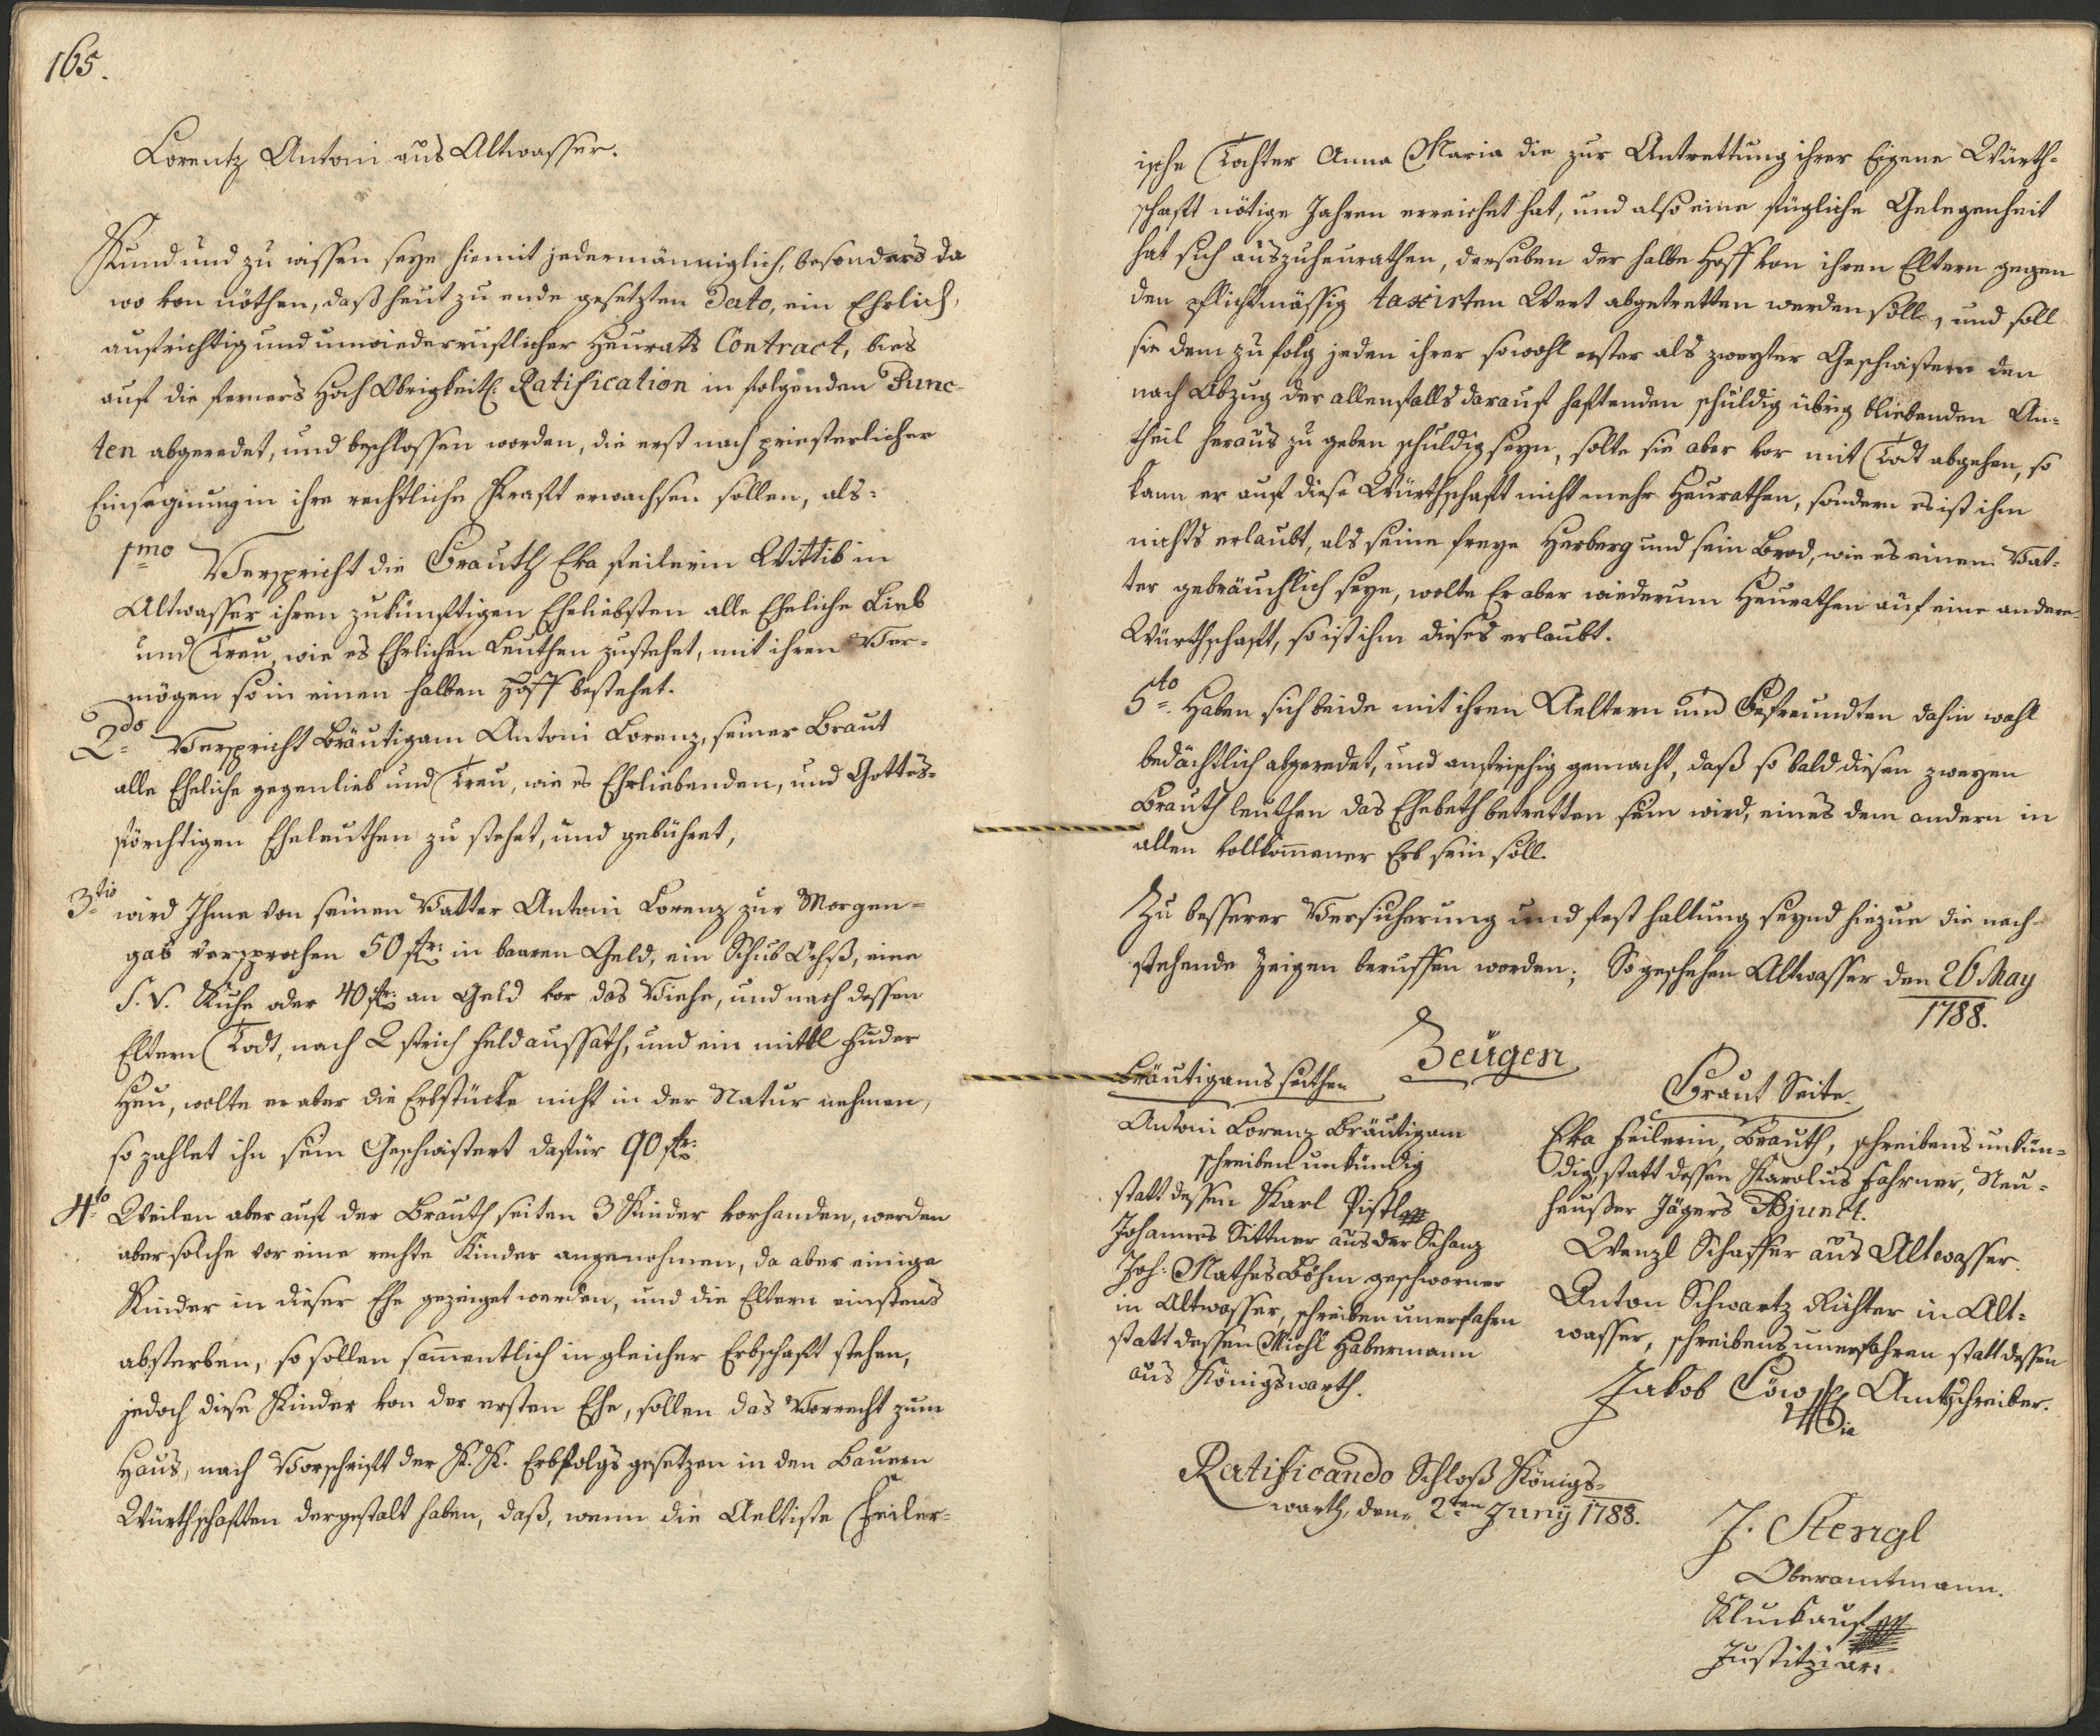 165.
Lorentz Antoni aus Altwasser.
Kund und zu wissen seye hiemit jedermänniglich, besonders da
wo von nöthen, daß heut zu ende gesetzten Dato, ein Ehrlich,
aufrichtig und unwiederruflicher Heurats Contract, bies
auf die ferners Hoch Obrigkeitl: Ratification in folgenden Punc-
ten abgeredet, und beschlossen worden, die erst nach priesterlicher
Einsegnung in ihre rechtliche Kraft erwachsen sollen, als:
1mo Verspricht die Brauth Eva feilerin Wittib in
Altwasser ihren zukünftigen Eheliebsten alle Eheliche Lieb
und Treu, wie es Ehrlichen Leuthen zustehet, mit ihren Ver-
mögen so in einen halben Hoff bestehet.
2do Verspricht Bräutigam Antoni Lorenz, seiner Braut
alle Eheliche gegenlieb und Treu, wie es Ehrliebenden, und Gottes-
förchtigen Eheleuthen zu stehet, und gebühret,
3tio wird Ihme von seinen Vatter Antoni Lorenz zur Morgen-
gab versprochen 50 fl: in baaren Geld, ein Schub Ochß, eine
S. V. Kuhe oder 40 fl: an Geld vor das Viehe, und nach dessen
Eltern Todt, nach 2 strich feld aussath, und ein mittl fuder
Heu, wolte er aber die Erbstücke nicht in der Natur nehmen,
so zahlet ihn sein Geschwistert dafür 90 fl:
4to Weilen aber auf der Brauth seiten 3 Kinder vorhanden, werden
aber solche vor eine rechte Kinder angenohmen, da aber einige
Kinder in dieser Ehe gezeiget werden, und die Eltern einstens
absterben, so sollen sammentlich in gleicher Erbschaft stehen,
jedoch diese Kinder von der ersten Ehe, sollen das Vorrecht zum
Haus, nach Vorschrift der K. K. Erbfolgs gesetzen in den Bauern
Würthschaften dergestalt haben, daß, wenn die Aeltiste Feiler-
ische Tochter Anna Maria die zur Antrettung ihrer Eigene Würth-
schaft nötige Jahren erreichet hat, und also eine fügliche Gelegenheit
hat sich auszuheurathen, derselben der halbe Hoff von ihren Eltern gegen
den pflichtmässig taxirten Wert abgetretten werden soll, und soll
sie dem zu folg jeden ihrer sowohl erster als zweyter Geschwistern den
nach Abzug der allenfalls darauf haftenden schuldig übrig bliebenden An-
theil heraus zu geben schuldig seyn, solte sie aber vor mit Todt abgehen, so
kann er auf diese Würthschaft nicht mehr Heurathen, sondern es ist ihm
nichts erlaubt, als seine freye Herberg und sein Brod, wie es einem Vat-
ter gebräuchlich seye, wolte Er aber wiederum Heurathen auf eine andere
Würthschaft, so ist ihm dieses erlaubt.
5to Haben sich beide mit ihren Aeltern und Befreundten dahin wohl
bedächtlich abgeredet, und anheischig gemacht, daß so bald diesen zweyen
Brauth leuthen das Ehebeth betretten sein wird, eines dem andern in
allen vollkommener Erb sein soll.
Zu besserer Versicherung und fest haltung seynd hiezue die nach-
stehende Zeigen beruffen worden; So geschehen Altwasser den 26 May
1788.
Zeugen
Bräutigams seithen
Antoni Lorenz Bräutigam
schreiben unkündig
statt dessen Karl Pistl
Johannes Sittner aus der Schanz
Joh: Mathes Böhm geschworner
in Altwasser, schreiben unerfahrn
statt dessen Michl Habermann
aus Königswarth.
Braut Seite
Eva feilerin, Brauth, schreibens unkün-
dig, statt dessen Karolus Fahrner, Neu-
heußer Jägers Adjunct.
Wenzl Schaffer aus Altwasser.
Anton Schwartz Richter in Alt-
wasser, schreibens unerfahren statt dessen
Jakob Löw Amtschreiber.
Ratificando Schloß Königs-
warth, den 2ten Juny 1788.
J. Stengl
Oberamtmann.
Kluckauf
Justitziar.